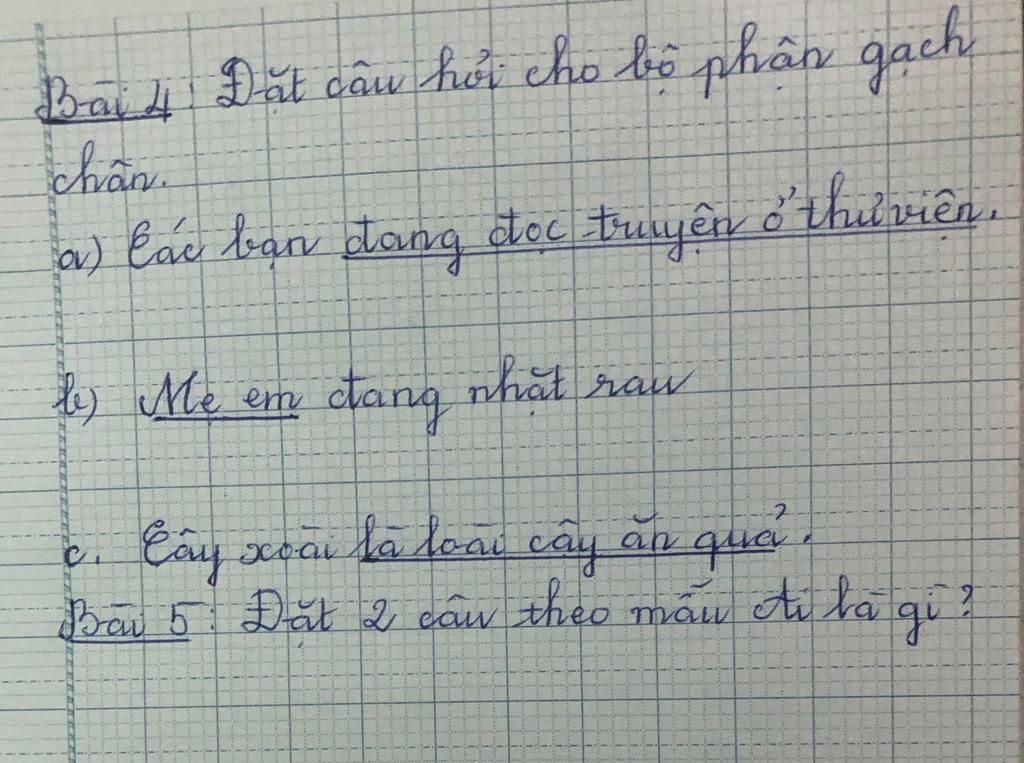 Bài 4: Đặt câu hỏi cho bộ phận gạch
chân.
a) Các bạn đang đọc truyện ở thư viện.
b) Mẹ em đang nhặt rau
c. Cây xoài là loài cây ăn quả.
Bài 5: Đặt 2 câu theo mẫu Ai là gì?